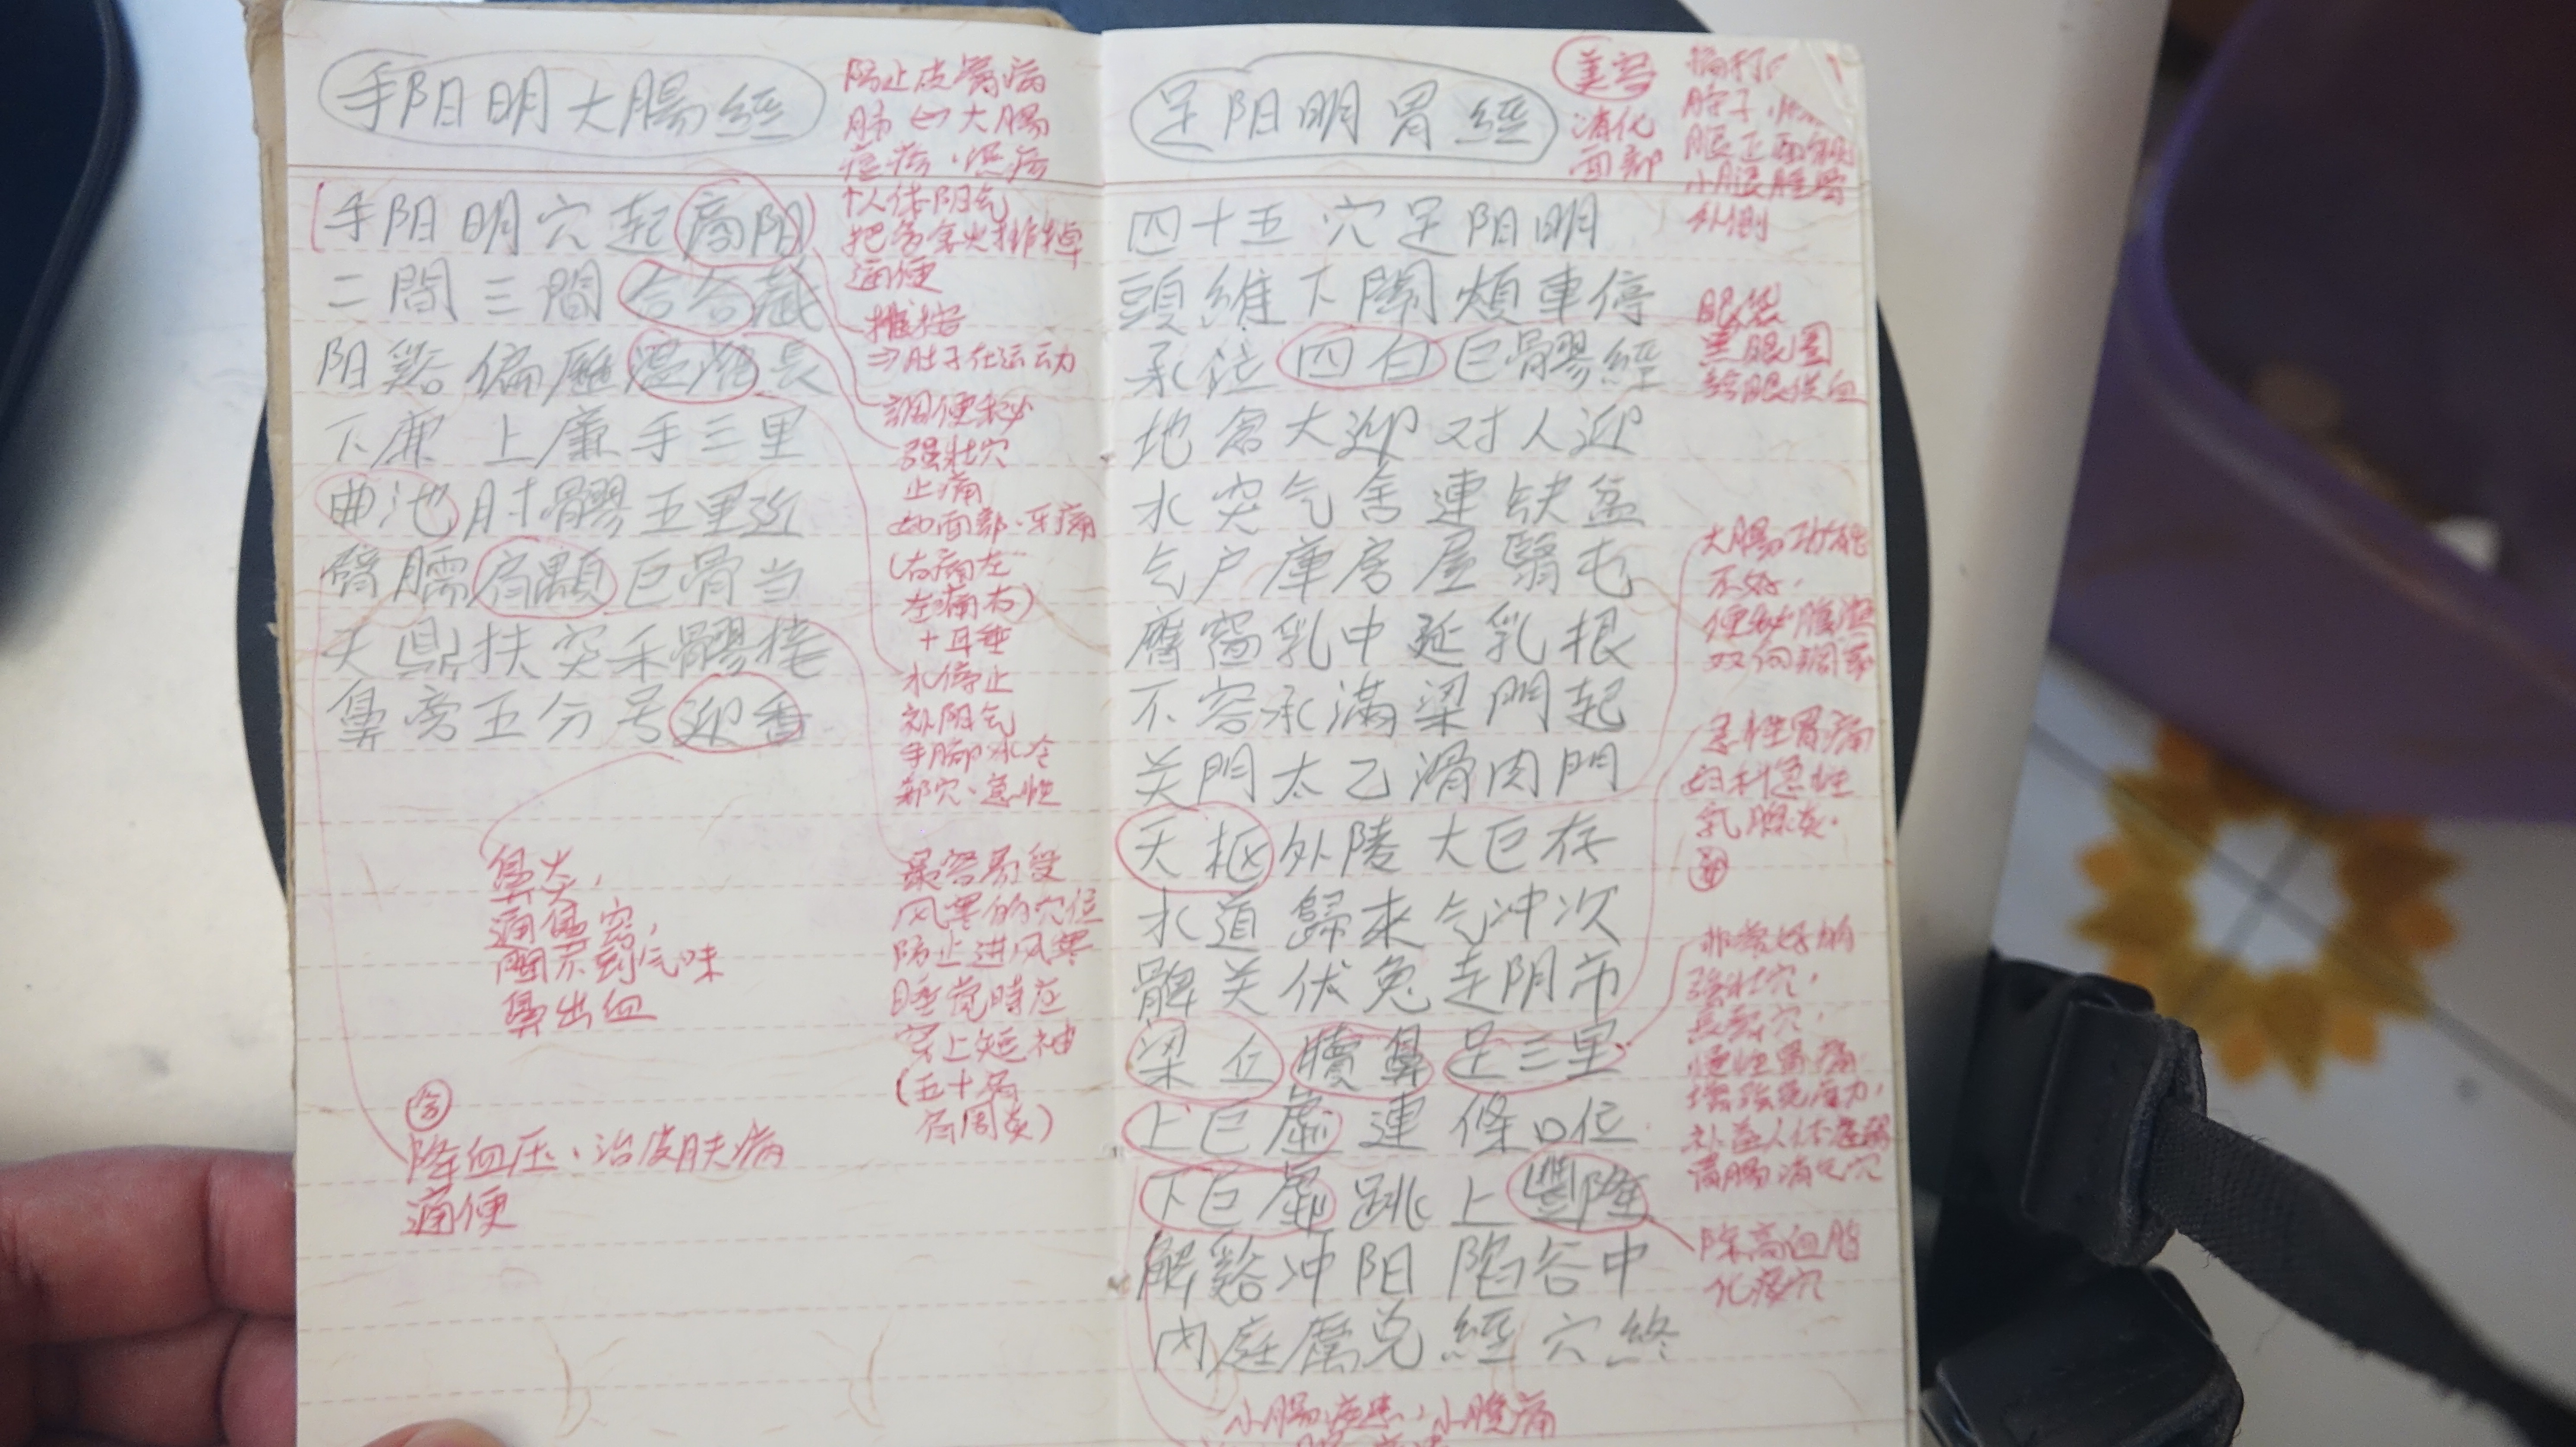 手阳明大腸經
防止皮膚病
肺⇔大腸
个人体阳气
通便
(手阳明穴起商阳)
二間三間合谷藏
阳谿偏歷溫溜長
下廉上廉手三里
曲池肘髎五里近
臂臑肩顒巨骨当
天鼎扶突禾髎接
鼻旁五分号迎香
推按
⇒肚子在运动
調便秘
强壮穴
止痛
如面部、牙痛
(右痛左
左痛右)
+耳垂
水停止
补阳气
手脚冰冷
郄穴、急性
最容易受
风寒的穴位
防止进风寒
睡觉時应
穿上短袖
(五十肩
肩周炎)
鼻炎,
通鼻窍,
聞不到气味
鼻出血
合
降血压、治皮肤病
通便
足阳明胃經
美容
消化
面部
脖子
腿正面
小腿胫骨
外側
四十五穴足阳明
頭維下關頰車停
承泣四白巨髎經
地倉大迎对人迎
水突气舍連缺盆
气户庫房屋翳屯
膺窗乳中延乳根
不容承滿梁門起
关門太乙滑肉門
天枢外陵大巨存
水道歸來气冲次
髀关伏兔走阴市
梁丘犢鼻足三里
上巨虛連條口位
下巨虛跳上豐隆
解谿冲阳陷谷中
内庭厲兑經穴終
眼袋
黑眼圈
給眼供血
大腸功能
不好,
便秘腹瀉
双向調节
急性胃痛
妇科急性
乳腺炎.
郄
非常好的
强壮穴,
長壽穴,
慢性胃痛
增强免疫力,
胃腸消气穴
降高血脂
化痰穴
小腸疾患、小腹痛